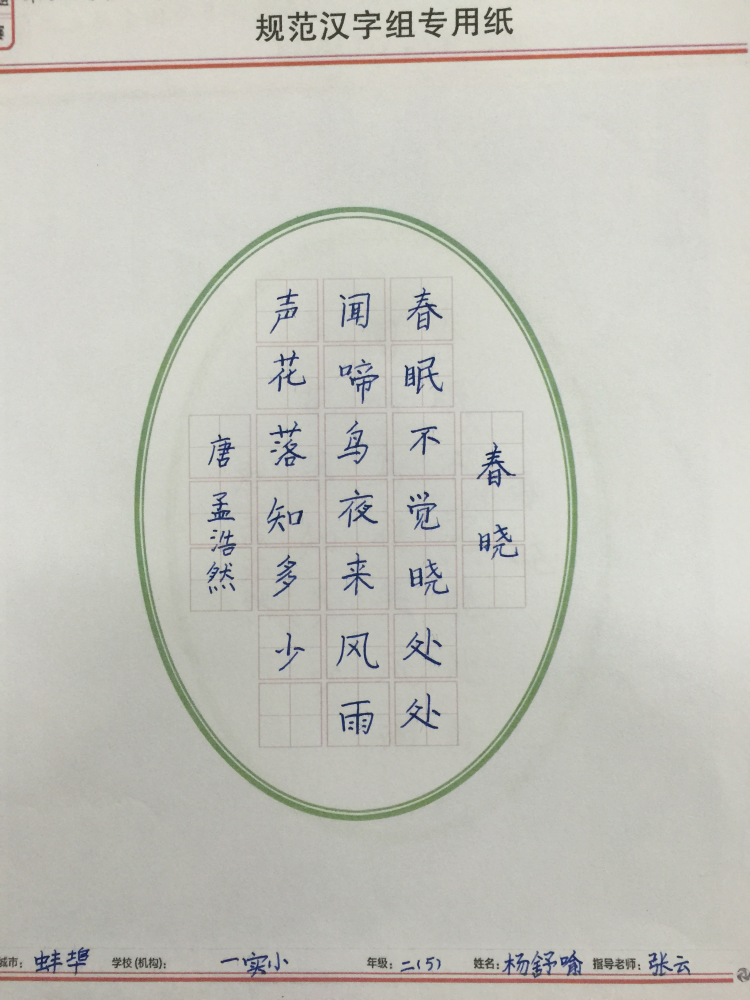 规范汉字组专用纸
春晓
春眠不觉晓处处
闻啼鸟夜来风雨
声花落知多少
唐孟浩然
城市：蚌埠 学校(机构)：一实小 年级：二(5) 姓名：杨舒喻 指导老师：张云